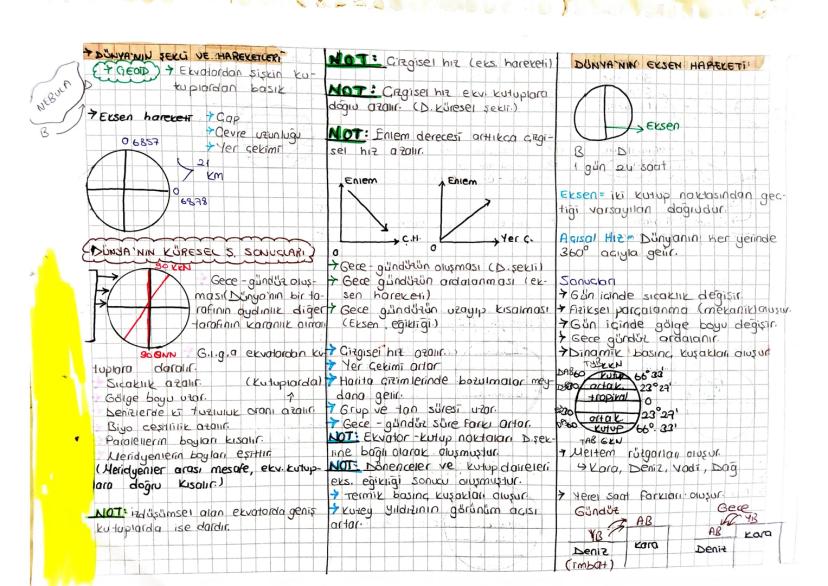 → DÜNYA'NIN ŞEKLİ VE HAREKETLERİ
NEBULA
B
D
→ GEOİD → Ekvatordan şişkin ku-
tuplardan basık
→ Eksen hareketi → Çap
→ Çevre uzunluğu
→ Yer çekimi
0 6857
21
KM
0
6878
DÜNYA'NIN KÜRESEL Ş. SONUÇLARI
90 KKN
90 GKN
Gece-gündüz oluş-
ması (Dünya'nın bir ta-
rafının aydınlık diğer
tarafının karanlık olması
G.ı.g.a ekvatordan ku-
tuplara daralır.
Sıcaklık azalır. (Kutuplarda)
Gölge boyu uzar.
Denizlerde ki tuzluluk oranı azalır
Biyo çeşitlilik azalır.
Paralellerin boyları kısalır.
Meridyenlerin boyları eşittir.
(Meridyenler arası mesafe, ekv. kutup-
lara doğru kısalır.)
NOT: izdüşümsel alan ekvatorda geniş
kutuplarda ise dardır.
NOT: Çizgisel hız (eks. hareketi)
NOT: Çizgisel hız ekv. kutuplara
doğru azalır. (D. küresel şekli.)
NOT: Enlem derecesi arttıkca çizgi-
sel hız azalır.
Enlem
Ç.H.
0
Enlem
Yer Ç.
0
→ Gece-gündüzün oluşması (D. şekli)
→ Gece gündüzün ardalanması (ek-
sen hareketi)
→ Gece gündüzün uzayıp kısalması
(Eksen eğikliği)
→ Çizgisel hız azalır.
→ Yer Çekimi artar
→ Harita çizimlerinde bozulmalar mey-
dana gelir.
→ Grup ve tan süresi uzar.
→ Gece-gündüz süre farkı artar.
NOT: Ekvator-kutup noktaları D. şek-
line bağlı olarak oluşmuştur.
NOT: Dönenceler ve kutup daireleri
eks. eğikliği sonucu oluşmuştur.
→ Termik basınç kuşakları oluşur.
→ Kutey Yıldızının görünüm açısı
artar.
DÜNYA'NIN EKSEN HAREKETİ
→ Eksen
B D
1 gün 24 saat
Eksen= iki kutup noktasından geç-
tiği varsayılan doğrudur.
Açısal Hız= Dünyanın her yerinde
360° açıyla gelir.
Sonuçları
→ Gün içinde sıcaklık değişir.
→ Fiziksel parçalanma (mekanik) oluşur
→ Gün içinde gölge boyu değişir.
→ Gece gündüz ardalanır.
→ Dinamik basınç kuşakları oluşur
TYB KKN
DAB 60 kutup 66° 33'
ortak 23° 27'
tropikal 0
ortak 23° 27'
kutup 66° 33'
TAB GKN
→ Meltem rüzgarları oluşur.
↳ Kara, Deniz, Vadi, Dağ
→ Yerel saat farkları oluşur.
Gündüz
YB AB
Deniz Kara
(imbat)
Gece
AB YB
Deniz Kara